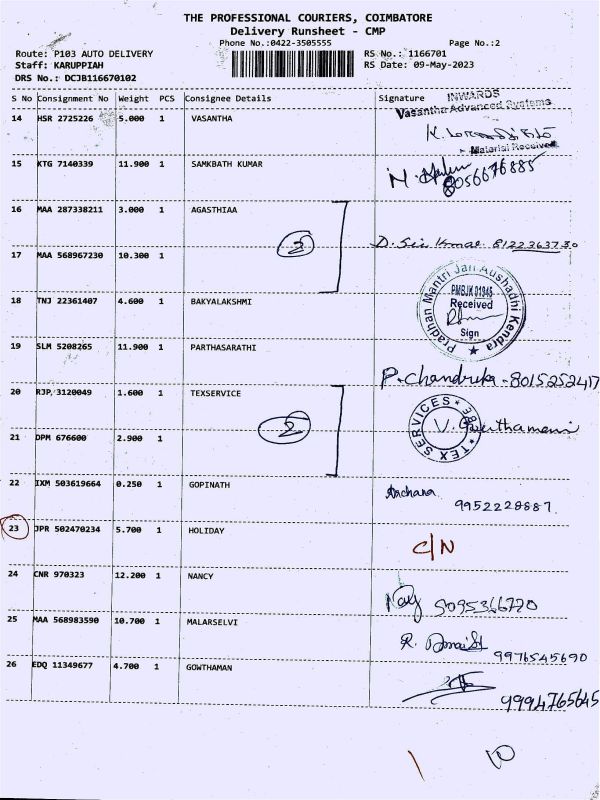 THE PROFESSIONAL COURIERS, COIMBATORE
Delivery Runsheet - CMP
Phone No.:0422-3505555 Page No.:2
Route: P103 AUTO DELIVERY RS No.: 1166701
Staff: KARUPPIAH RS Date: 09-May-2023
DRS No.: DCJB116670102
S No Consignment No Weight PCS Consignee Details Signature
INWARDS
Vasantha Advanced Systems
14 HSR 2725226 5.000 1 VASANTHA
Material Received
15 KTG 7140339 11.900 1 SAMKBATH KUMAR
8056676885
16 MAA 287338211 3.000 1 AGASTHIAA
2
D. Siv Kumar 8122363730
17 MAA 568967230 10.300 1
Pradhan Mantri Jan Aushadhi Kendra
PMBJK 01945
Received
Sign
18 TNJ 22361407 4.600 1 BAKYALAKSHMI
19 SLM 5208265 11.900 1 PARTHASARATHI
P. Chandrika - 8015252417
20 RJP 3120049 1.600 1 TEXSERVICE
2
TEX SERVICES * CBE *
21 DPM 676600 2.900 1
22 IXM 503619664 0.250 1 GOPINATH
Archana
9952228887
23 JPR 502470234 5.700 1 HOLIDAY
C/N
24 CNR 970323 12.200 1 NANCY
9095366770
25 MAA 568983590 10.700 1 MALARSELVI
9976545690
26 EDQ 11349677 4.700 1 GOWTHAMAN
9994765645
10